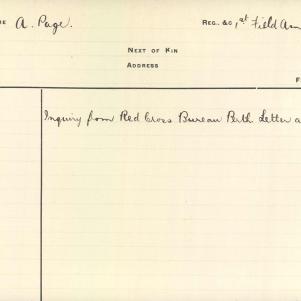 ME A. Page. REG. &C 1st Field Am
NEXT OF KIN
ADDRESS
F
Inquiry from Red Cross Bureau Perth. Letter a